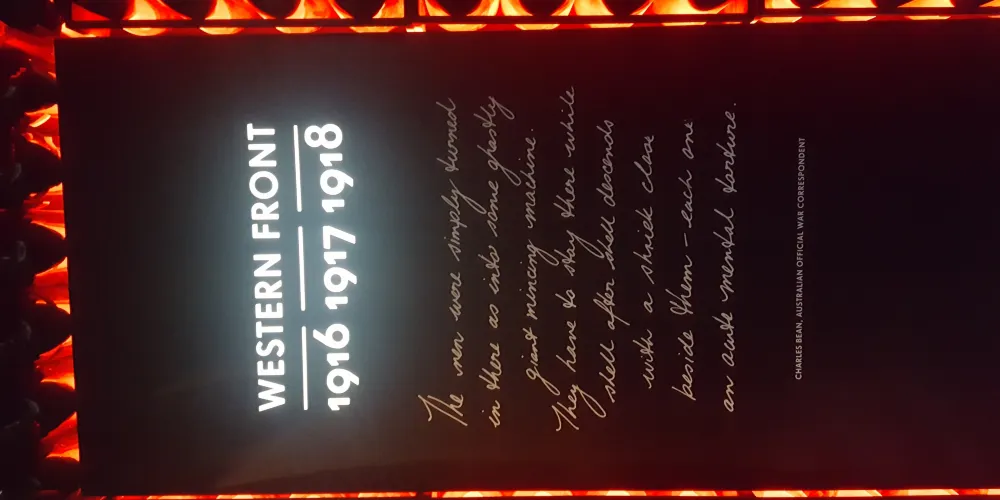 WESTERN FRONT
1916 1917 1918
The men were simply turned
in there as into some ghastly
giant mincing machine.
They have to stay there while
shell after shell descends
with a shriek close
beside them – each one
an acute mental torture.
CHARLES BEAN, AUSTRALIAN OFFICIAL WAR CORRESPONDENT